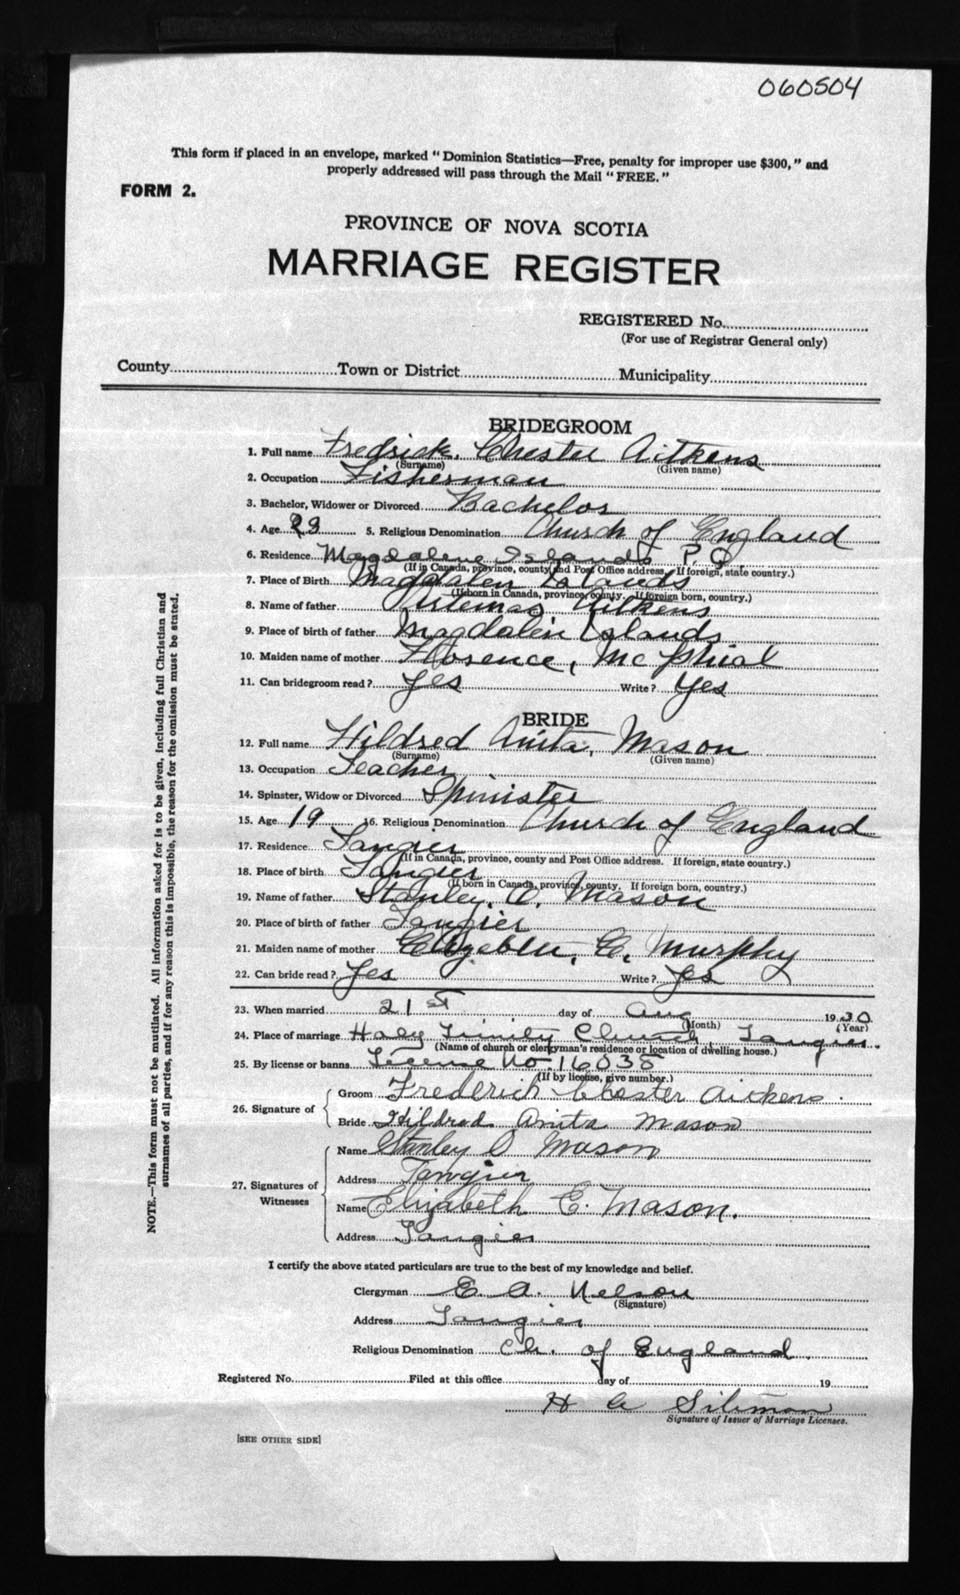 060504
This form if placed in an envelope, marked "Dominion Statistics—Free, penalty for improper use $300," and
properly addressed will pass through the Mail "FREE."
FORM 2.
PROVINCE OF NOVA SCOTIA
MARRIAGE REGISTER
REGISTERED No.
(For use of Registrar General only)
County Town or District Municipality
BRIDEGROOM
1. Full name Fredrick. Chester Aitkens
(Surname) (Given name)
2. Occupation Fisherman
3. Bachelor, Widower or Divorced Bachelor
4. Age 5. Religious Denomination Church of England
6. Residence Magdalene Islands P.Q.
(If in Canada, province, county and Post Office address. If foreign, state country.)
7. Place of Birth Magdalen Islands
(If born in Canada, province, county. If foreign born, country.)
8. Name of father Artemas Aitkens
9. Place of birth of father Magdalen Islands
10. Maiden name of mother Florence, McPhial
11. Can bridegroom read? Yes Write? Yes
BRIDE
12. Full name Hildred Anita, Mason
(Surname) (Given name)
13. Occupation Teacher
14. Spinster, Widow or Divorced Spinister
15. Age 19 16. Religious Denomination Church of England
17. Residence Tangier
(If in Canada, province, county and Post Office address. If foreign, state country.)
18. Place of birth Tangier
(If born in Canada, province, county. If foreign born, country.)
19. Name of father Stanley, O. Mason
20. Place of birth of father Tangier
21. Maiden name of mother E. Murphy
22. Can bride read? Yes Write? Yes
23. When married 21st day of Aug 1930
(Month) (Year)
24. Place of marriage Holy Trinity Church, Tangier.
(Name of church or clergyman's residence or location of dwelling house.)
25. By license or banns License No. 16035
(If by license, give number.)
26. Signature of Groom Frederick Chester Aitkens.
Bride Hildred Anita Mason
27. Signatures of Witnesses Name Stanley O Mason
Address Tangier
Name Elizabeth E. Mason.
Address Tangier
I certify the above stated particulars are true to the best of my knowledge and belief.
Clergyman E. A. Nelson
(Signature)
Address Tangier
Religious Denomination Ch. of England.
Registered No. Filed at this office day of 19
H A
Signature of Issuer of Marriage Licenses.
[SEE OTHER SIDE]
NOTE.—This form must not be mutilated. All information asked for is to be given, including full Christian and
surnames of all parties, and if for any reason this is impossible, the reason for the omission must be stated.